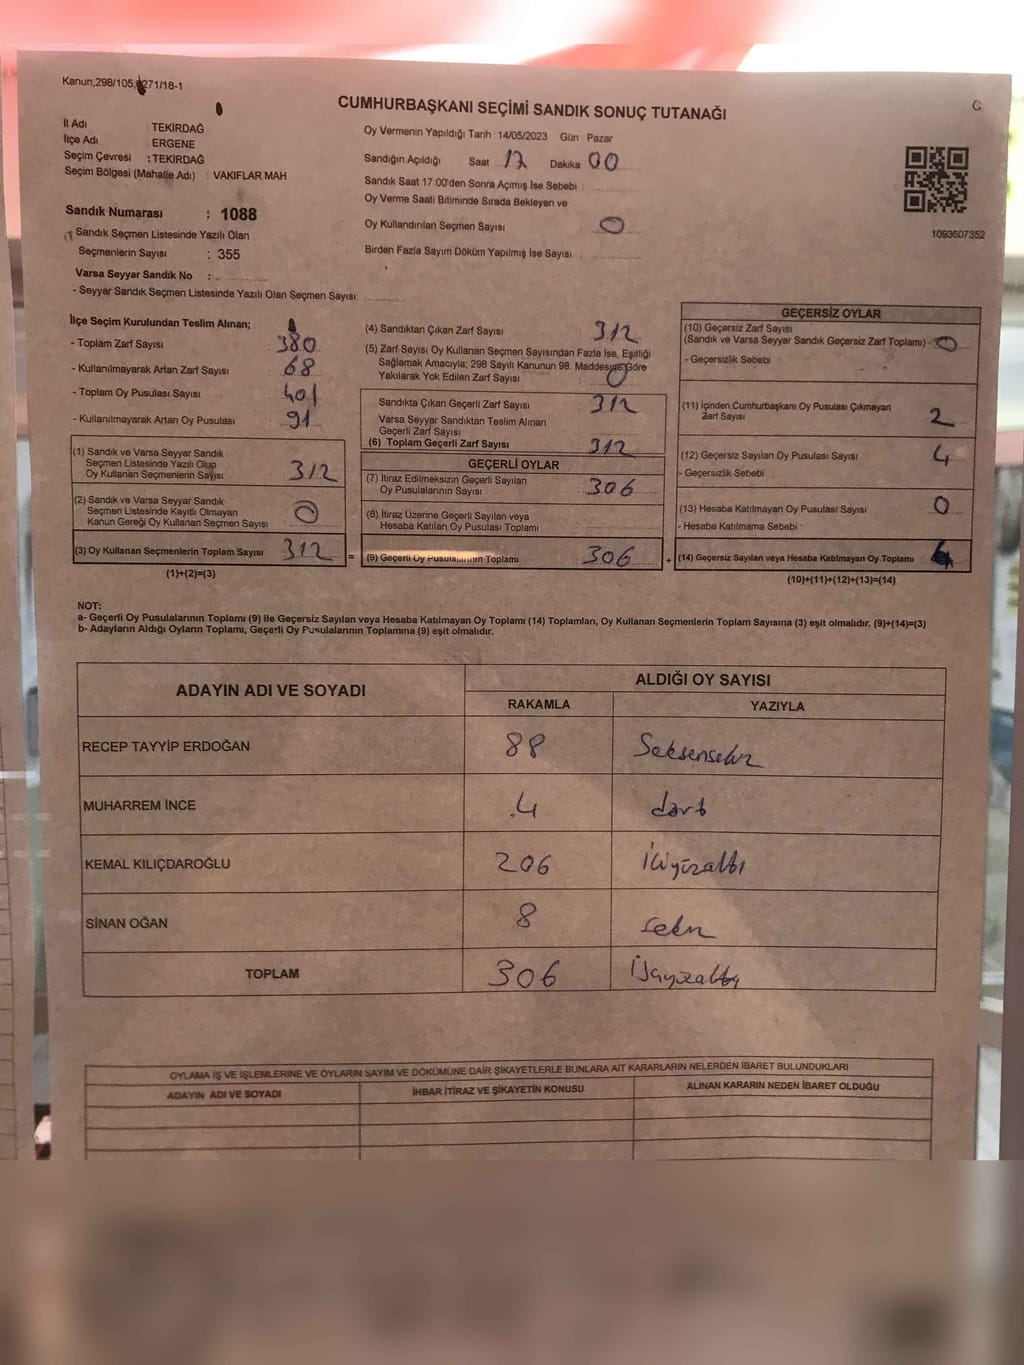 Kanun,298/105,271/18-1
CUMHURBAŞKANI SEÇİMİ SANDIK SONUÇ TUTANAĞI
İl Adı : TEKİRDAĞ
İlçe Adı : ERGENE
Seçim Çevresi : TEKİRDAĞ
Seçim Bölgesi (Mahalle Adı) : VAKIFLAR MAH
Sandık Numarası : 1088
Sandık Seçmen Listesinde Yazılı Olan
Seçmenlerin Sayısı : 355
Varsa Seyyar Sandık No :
- Seyyar Sandık Seçmen Listesinde Yazılı Olan Seçmen Sayısı:
Oy Vermenin Yapıldığı Tarih 14/05/2023 Gün Pazar
Sandığın Açıldığı Saat 17 Dakika 00
Sandık Saat 17:00'den Sonra Açımış İse Sebebi :
Oy Verme Saati Bitiminde Sırada Bekleyen ve
Oy Kullandırılan Seçmen Sayısı 0
Birden Fazla Sayım Döküm Yapılmış İse Sayısı :
G
1093607352
İlçe Seçim Kurulundan Teslim Alınan;
- Toplam Zarf Sayısı : 380
- Kullanılmayarak Artan Zarf Sayısı : 68
- Toplam Oy Pusulası Sayısı : 401
- Kullanılmayarak Artan Oy Pusulası : 91
(1) Sandık ve Varsa Seyyar Sandık
Seçmen Listesinde Yazılı Olup
Oy Kullanan Seçmenlerin Sayısı 312
(2) Sandık ve Varsa Seyyar Sandık
Seçmen Listesinde Kayıtlı Olmayan
Kanun Gereği Oy Kullanan Seçmen Sayısı : 0
(3) Oy Kullanan Seçmenlerin Toplam Sayısı 312 =
(1)+(2)=(3)
(4) Sandıktan Çıkan Zarf Sayısı 312
(5) Zarf Sayısı Oy Kullanan Seçmen Sayısından Fazla İse, Eşitliği
Sağlamak Amacıyla; 298 Sayılı Kanunun 98. Maddesine Göre
Yakılarak Yok Edilen Zarf Sayısı : 0
Sandıkta Çıkan Geçerli Zarf Sayısı : 312
Varsa Seyyar Sandıktan Teslim Alınan
Geçerli Zarf Sayısı
(6) Toplam Geçerli Zarf Sayısı 312
GEÇERLİ OYLAR
(7) İtiraz Edilmeksizin Geçerli Sayılan
Oy Pusulalarının Sayısı : 306
(8) İtiraz Üzerine Geçerli Sayılan veya
Hesaba Katılan Oy Pusulası Toplamı :
(9) Geçerli Oy Pusulalarının Toplamı 306 +
GEÇERSİZ OYLAR
(10) Geçersiz Zarf Sayısı
(Sandık ve Varsa Seyyar Sandık Geçersiz Zarf Toplamı) 0
- Geçersizlik Sebebi :
(11) İçinden Cumhurbaşkanı Oy Pusulası Çıkmayan
Zarf Sayısı 2
(12) Geçersiz Sayılan Oy Pusulası Sayısı 4
- Geçersizlik Sebebi
(13) Hesaba Katılmayan Oy Pusulası Sayısı 0
- Hesaba Katılmama Sebebi :
(14) Geçersiz Sayılan veya Hesaba Katılmayan Oy Toplamı
(10)+(11)+(12)+(13)=(14)
NOT:
a- Geçerli Oy Pusulalarının Toplamı (9) ile Geçersiz Sayılan veya Hesaba Katılmayan Oy Toplamı (14) Toplamları, Oy Kullanan Seçmenlerin Toplam Sayısına (3) eşit olmalıdır. (9)+(14)=(3)
b- Adayların Aldığı Oyların Toplamı, Geçerli Oy Pusulalarının Toplamına (9) eşit olmalıdır.
ADAYIN ADI VE SOYADI ALDIĞI OY SAYISI
RAKAMLA YAZIYLA
RECEP TAYYİP ERDOĞAN 88 Seksensekiz
MUHARREM İNCE 4 dört
KEMAL KILIÇDAROĞLU 206 İkiyüzaltı
SİNAN OĞAN 8 sekiz
TOPLAM 306
OYLAMA İŞ VE İŞLEMLERİNE VE OYLARIN SAYIM VE DÖKÜMÜNE DAİR ŞİKAYETLERLE BUNLARA AİT KARARLARIN NELERDEN İBARET BULUNDUKLARI
ADAYIN ADI VE SOYADI İHBAR İTİRAZ VE ŞİKAYETİN KONUSU ALINAN KARARIN NEDEN İBARET OLDUĞU